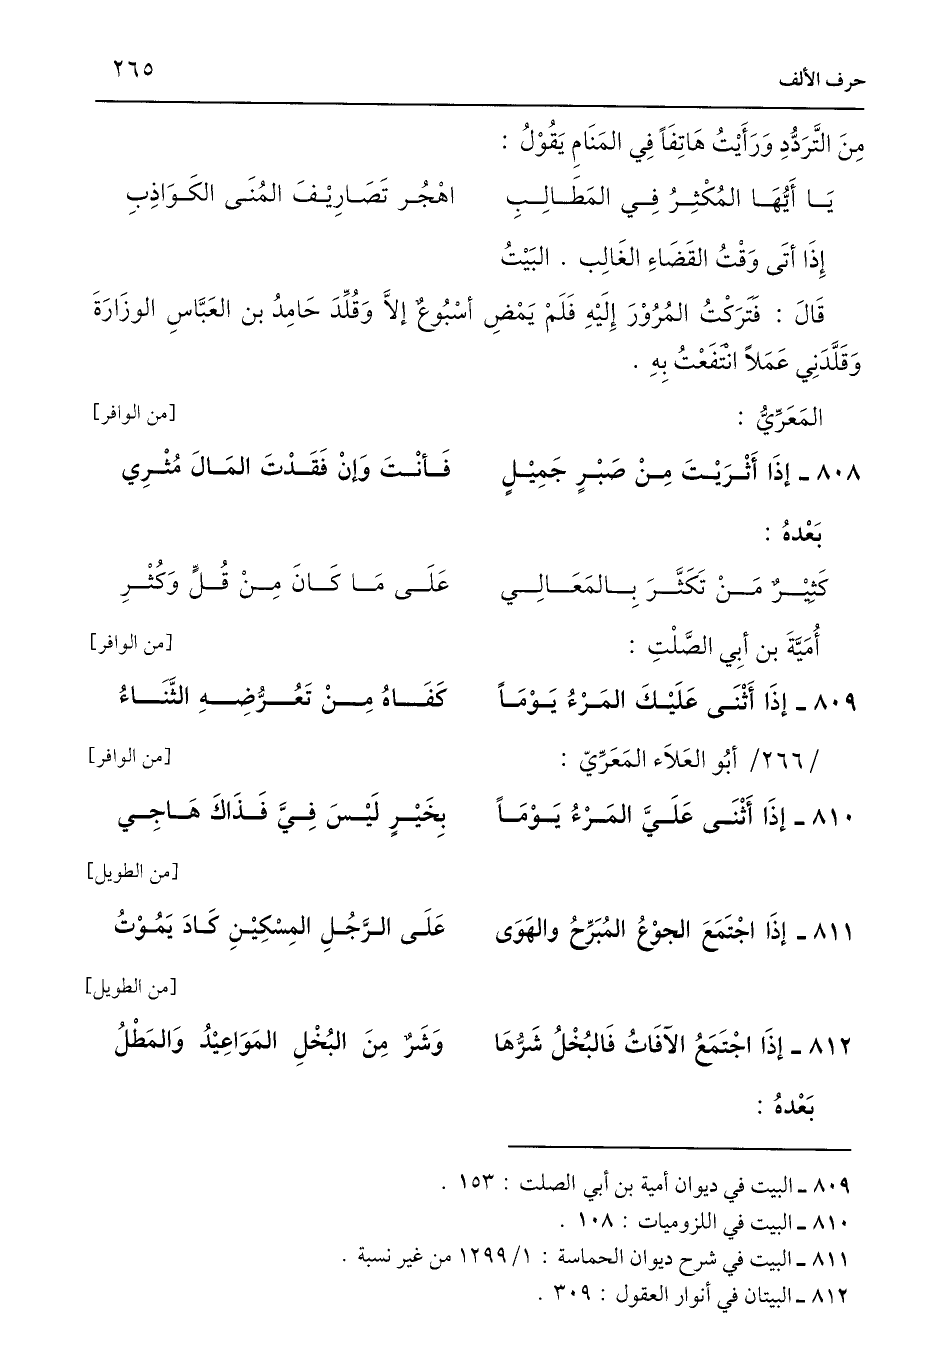 حرف الألف ٢٦٥
مِنَ التَّرَدُّدِ وَرَأَيْتُ هَاتِفَاً فِي المَنَامِ يَقُوْلُ :
يَا أَيُّهَا المُكْثِرُ فِي المَطَالِبِ اهْجُر تَصَارِيْفَ المُنَى الكَوَاذِبِ
إِذَا أتَى وَقْتُ القَضَاءِ الغَالِب . البَيْتُ
قَالَ : فَتَرَكْتُ المُرُوْرَ إِلَيْهِ فَلَمْ يَمْضِ أسْبُوعٌ إلاَّ وَقُلِّدَ حَامِدُ بن العَبَّاسِ الوزَارَةَ
وَقَلَّدَنِي عَمَلاً انْتَفَعْتُ بِهِ .
المَعَرِّيُّ : [من الوافر]
٨٠٨ ـ إِذَا أَثْرَيْتَ مِنْ صَبْرٍ جَمِيْلٍ فَأنْتَ وَإِنْ فَقَدْتَ المَالَ مُثْرِي
بَعْدهُ :
كَثِيْرٌ مَنْ تَكَثَّرَ بِالمَعَالِي عَلَى مَا كَانَ مِنْ قُلٍّ وَكُثْرِ
أُمَيَّةَ بن أبِي الصَّلْتِ : [من الوافر]
٨٠٩ ـ إِذَا أَثْنَى عَلَيْكَ المَرْءُ يَوْمَاً كَفَاهُ مِنْ تَعَرُّضِهِ الثَّنَاءُ
/٢٦٦/ أبُو العَلاَء المَعَرِّيّ : [من الوافر]
٨١٠ ـ إِذَا أَثْنَى عَلَيَّ المَرْءُ يَوْمَاً بِخَيْرٍ لَيْسَ فِيَّ فَذَاكَ هَاجِي
[من الطويل]
٨١١ ـ إِذَا اجْتَمَعَ الجوْعُ المُبَرِّحُ والهَوَى عَلَى الرَّجُلِ المِسْكِيْنِ كَادَ يَمُوْتُ
[من الطويل]
٨١٢ ـ إِذَا اجْتَمَعُ الآفَاتُ فَالبُخْلُ شَرُّهَا وَشَرٌ مِنَ البُخْلِ المَوَاعِيْدُ وَالمَطْلُ
بَعْدهُ :
٨٠٩ ـ البيت في ديوان أمية بن أبي الصلت : ١٥٣ .
٨١٠ ـ البيت في اللزوميات : ١٠٨ .
٨١١ ـ البيت في شرح ديوان الحماسة : ١/ ١٢٩٩ من غير نسبة .
٨١٢ ـ البيتان في أنوار العقول : ٣٠٩ .